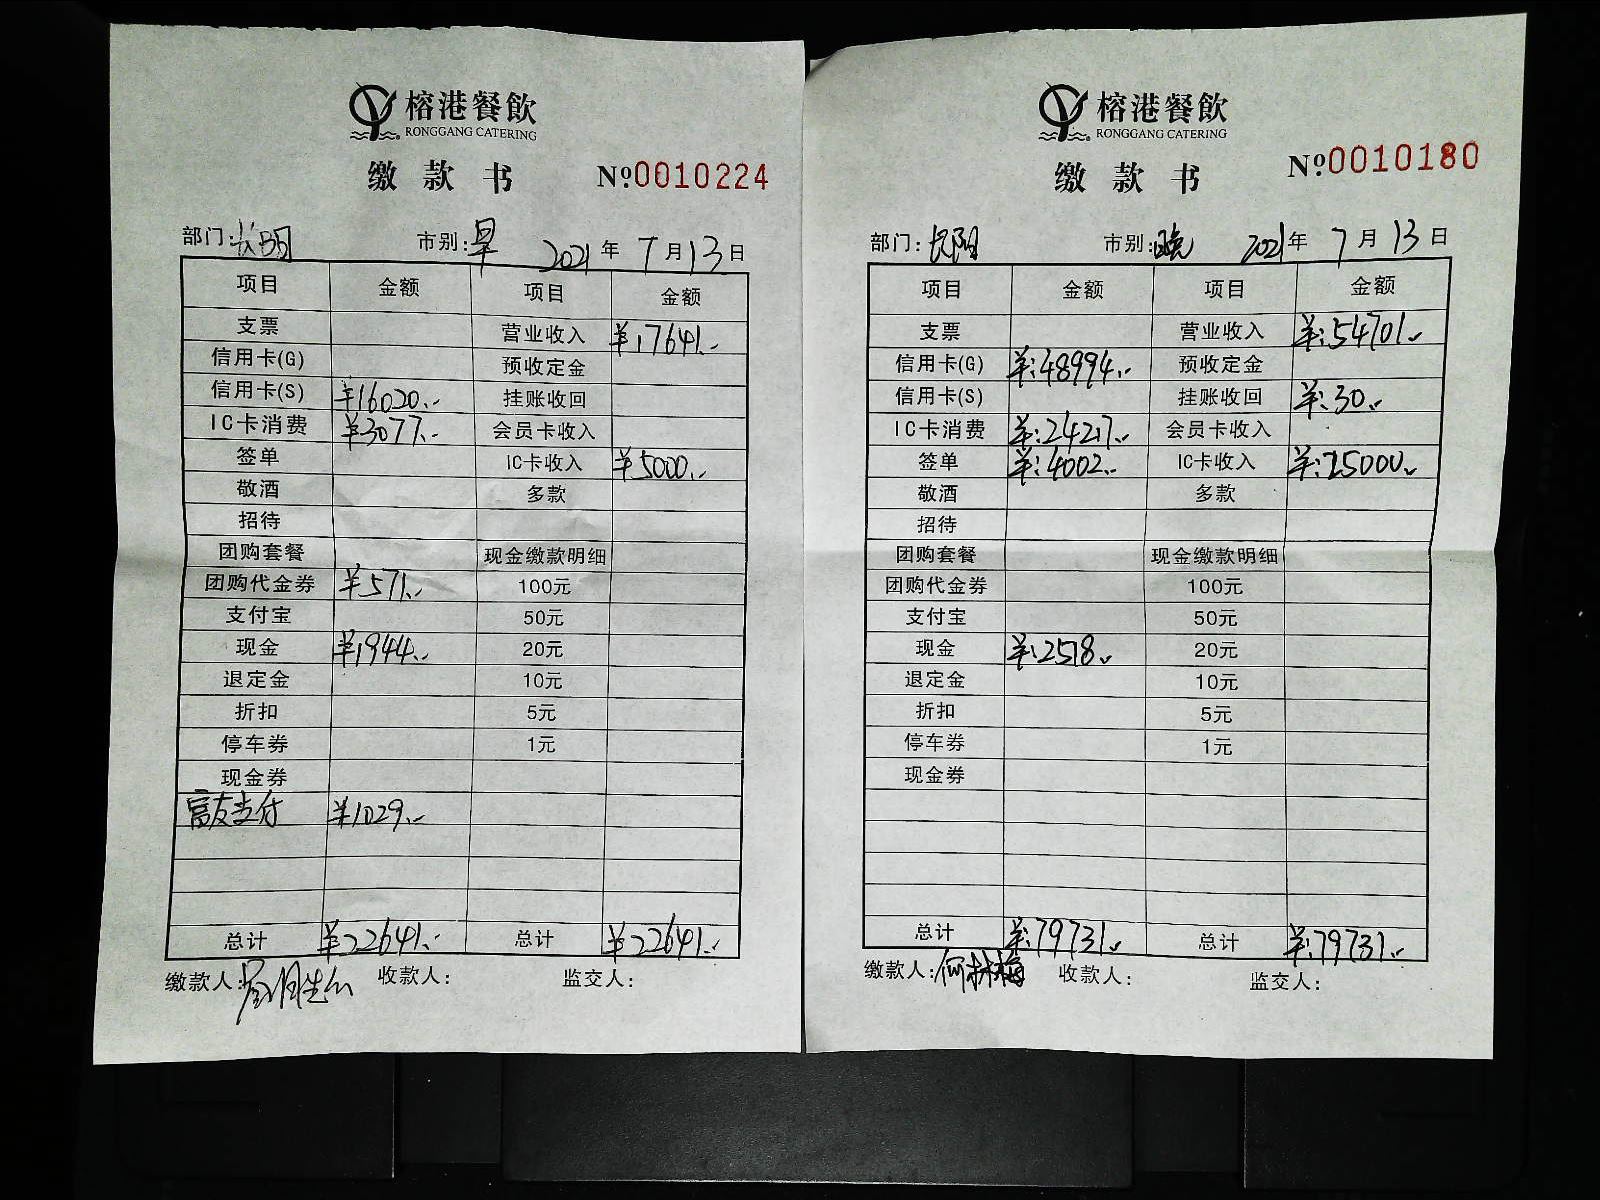 榕港餐飲
RONGGANG CATERING
缴款书 №0010224
部门:长阳 市别:早 2021年7月13日
项目 金额 项目 金额
支票 营业收入 ¥17641.-
信用卡(G) 预收定金
信用卡(S) ¥16020.- 挂账收回
IC卡消费 ¥3077.- 会员卡收入
签单 IC卡收入 ¥5000.-
敬酒 多款
招待
团购套餐 现金缴款明细
团购代金券 ¥571.- 100元
支付宝 50元
现金 ¥1944.- 20元
退定金 10元
折扣 5元
停车券 1元
现金券
富友支付 ¥1029.-
总计 ¥22641.- 总计 ¥22641.-
缴款人: 收款人: 监交人:
榕港餐飲
RONGGANG CATERING
缴款书 №0010180
部门:长阳 市别:晚 2021年7月13日
项目 金额 项目 金额
支票 营业收入 ¥:54701.-
信用卡(G) ¥:48994.- 预收定金
信用卡(S) 挂账收回 ¥:30.-
IC卡消费 ¥:24217.- 会员卡收入
签单 ¥:4002.- IC卡收入 ¥:25000.-
敬酒 多款
招待
团购套餐 现金缴款明细
团购代金券 100元
支付宝 50元
现金 ¥:2518.- 20元
退定金 10元
折扣 5元
停车券 1元
现金券
总计 ¥:79731.- 总计 ¥:79731.-
缴款人:何林梅 收款人: 监交人: